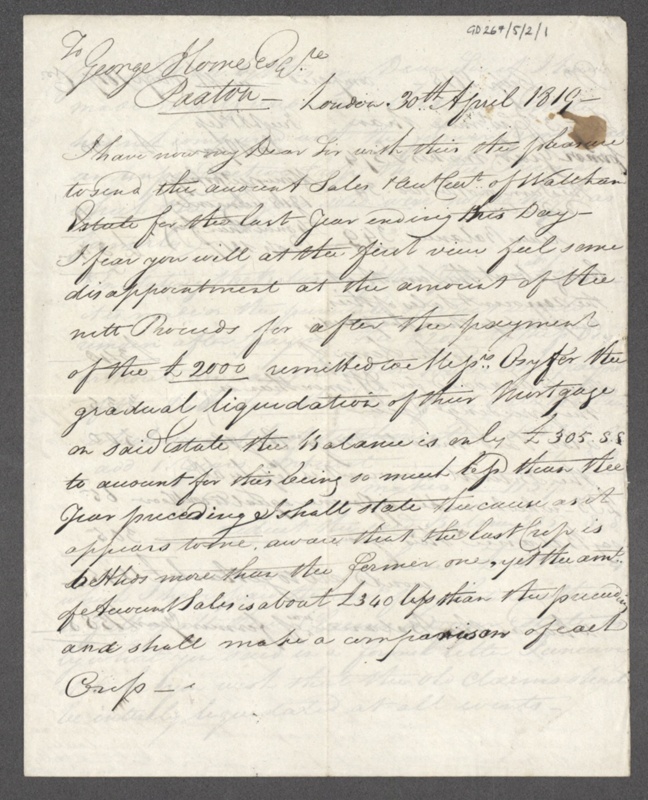 GD267/5/2/1
To
George Home Esqre
Paxton - London 30th April 1819 -
I have now my Dear Sir with this the pleasure
to send the account Sales & Acct Curt. of Waltham
Estate for the last Year ending this Day -
I fear you will at the first view feel some
disappointment at the amount of the
nett Proceeds for after the payment
of the £2000 remitted to Messrs. for the
gradual liquidation of their Mortgage
on said Estate the Balance is only £305.3.8
to account for this being so much less than the
Year preceding I shall state the cause as it
appears to me. aware that the last Crop is
6 Hhds more than the former one, yet the amt.
of Account Sales is about £340 less than the preceeding
and shall make a comparison of each
Crop -